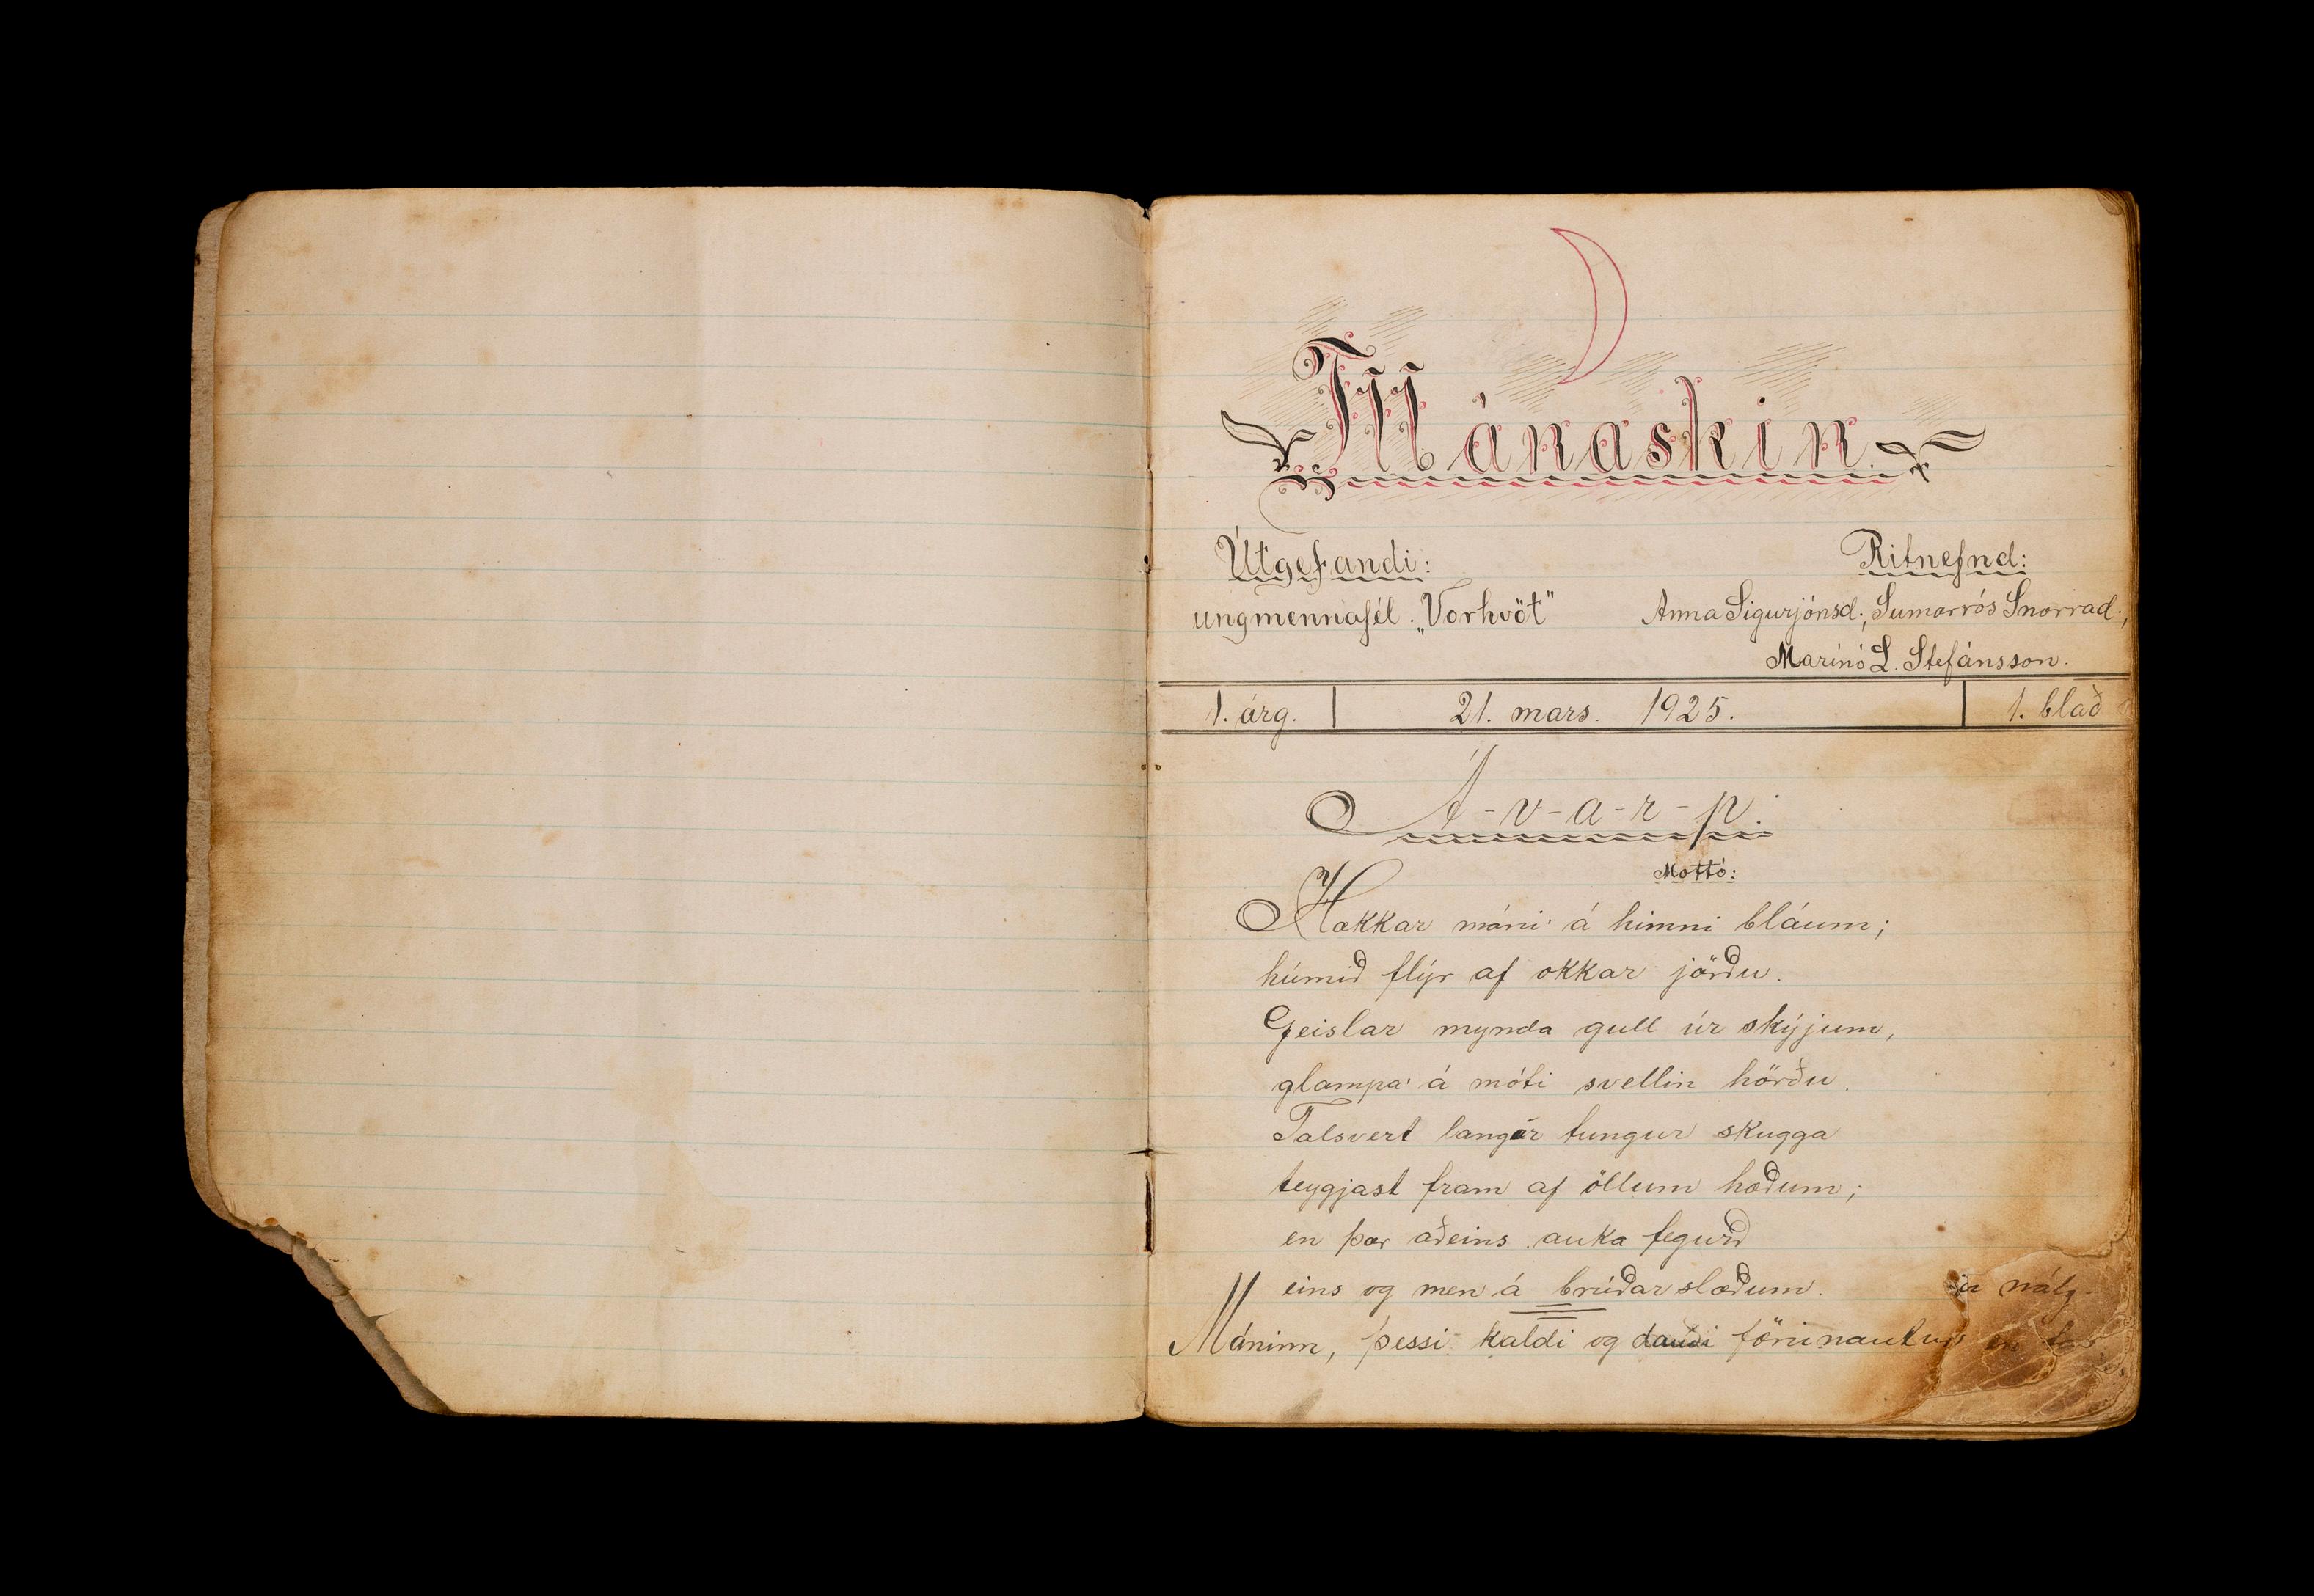 Mánaskin.
Útgefandi:
Ritnefnd:
ungmennafél. „Vorhvöt"
Anna Sigurjónsd., Sumarrós Snorrad.,
Marinó L. Stefánsson.
1. árg.
21. mars. 1925.
1. blað
Á-v-a-r-p.
Mottó:
Hækkar máni á himni bláum;
húmið flýr af okkar jörðu.
Geislar mynda gull úr skýjum,
glampa á móti svellin hörðu.
Talsvert langar tungur skugga
teygjast fram af öllum hæðum;
en þær aðeins auka fegurð
eins og men á brúðarslæðum.
Máninn, þessi kaldi og dauði förunautur